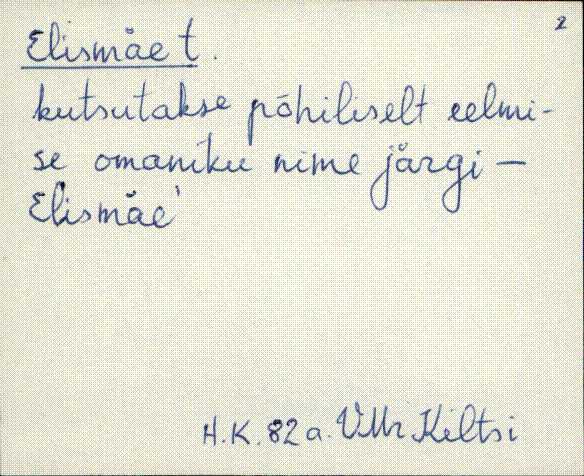 2
Elismäe t.
kutsutakse põhiliselt eelmi-
se omaniku nime järgi —
Elismäe'
H. K. 82 a. VMr Kiltsi